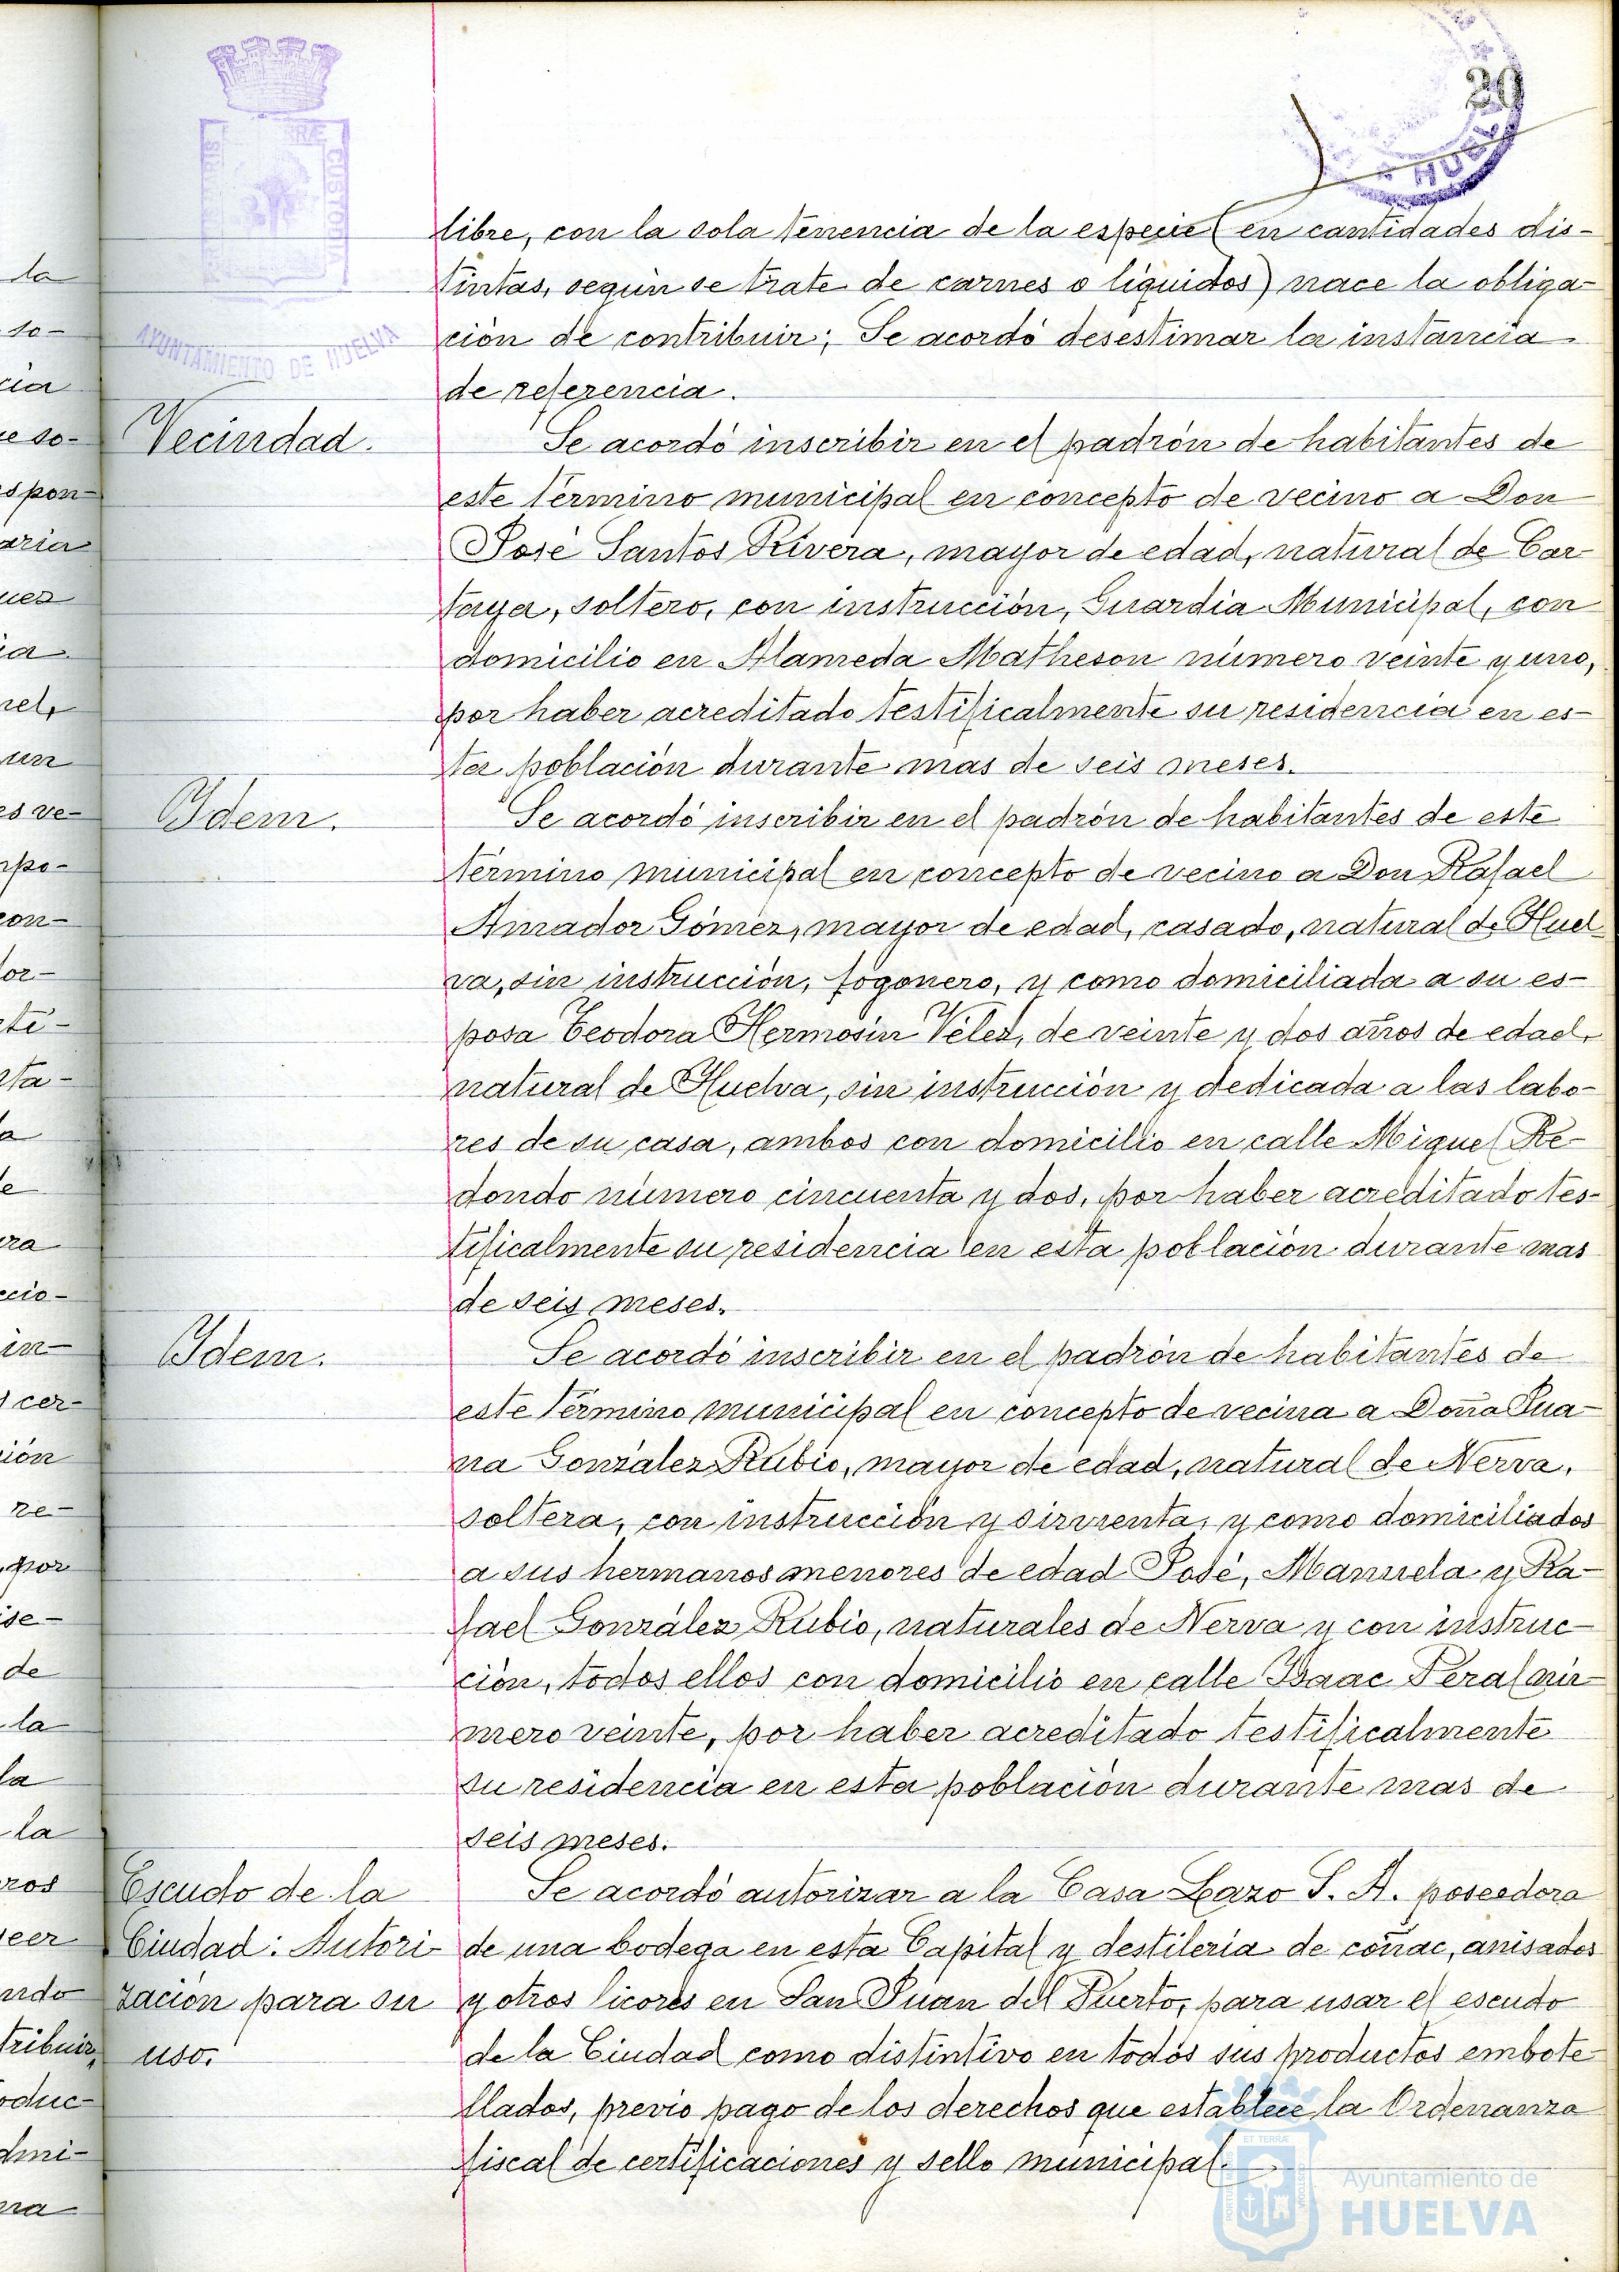 20
HUELV
AYUNTAMIENTO DE HUELVA
CUSTODIA
libre, con la sola tenencia de la especie (en cantidades dis-
tintas, según se trate de carnes o líquidos) nace la obliga-
ción de contribuir; Se acordó desestimar la instancia
de referencia.
Vecindad.
Se acordó inscribir en el padrón de habitantes de
este término municipal en concepto de vecino a Don
José Santos Rivera, mayor de edad, natural de Car-
taya, soltero, con instrucción, Guardia Municipal, con
domicilio en Alameda Matheson número veinte y uno,
por haber acreditado testificalmente su residencia en es-
ta población durante mas de seis meses.
Idem.
Se acordó inscribir en el padrón de habitantes de este
término municipal en concepto de vecino a Don Rafael
Amador Gómez, mayor de edad, casado, natural de Huel-
va, sin instrucción, fogonero, y como domiciliada a su es-
posa Teodora Hermosin Vélez, de veinte y dos años de edad,
natural de Huelva, sin instrucción y dedicada a las labo-
res de su casa, ambos con domicilio en calle Miguel Re-
dondo número cincuenta y dos, por haber acreditado tes-
tificalmente su residencia en esta población durante mas
de seis meses.
Idem.
Se acordó inscribir en el padrón de habitantes de
este término municipal en concepto de vecina a Doña Jua-
na González Rubio, mayor de edad, natural de Nerva,
soltera, con instrucción y sirvienta, y como domiciliados
a sus hermanos menores de edad José, Manuela y Ra-
fael González Rubio, naturales de Nerva y con instruc-
ción, todos ellos con domicilio en calle Isaac Peral nú-
mero veinte, por haber acreditado testificalmente
su residencia en esta población durante mas de
seis meses.
Escudo de la
Ciudad: Autori-
zación para su
uso.
Se acordó autorizar a la Casa Lazo S. A. poseedora
de una bodega en esta Capital y destilería de coñac, anisados
y otros licores en San Juan del Puerto, para usar el escudo
de la Ciudad como distintivo en todos sus productos embote-
llados, previo pago de los derechos que establece la Ordenanza
fiscal de certificaciones y sello municipal.
Ayuntamiento de
HUELVA
la
so-
cia
e so-
spon-
aria
ues
ia
nel,
un
es ve-
mpo-
con-
or-
te-
nta-
a
e
ra
ccio-
in-
cer-
ión
re-
por
ise-
de
la
la
la
ros
eer
ndo
tribuir,
oduc-
dmi-
na